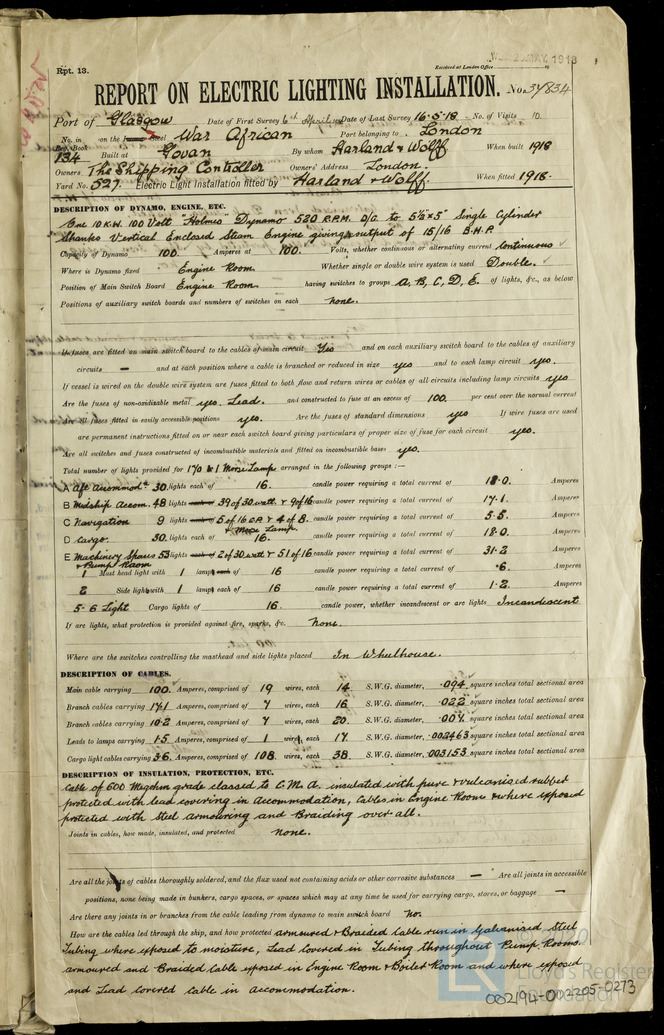 Rpt. 13.
Received at London Office
25 MAY 1918
REPORT ON ELECTRIC LIGHTING INSTALLATION. No. 37834
Port of Glasgow Date of First Survey 6th April Date of Last Survey 16-5-18 No. of Visits 10.
No. in on the Steel War African Port belonging to London
Reg. Book
134 Built at Govan By whom Harland & Wolff When built 1918
Owners The Shipping Controller Owners' Address London.
Yard No. 527 Electric Light Installation fitted by Harland & Wolff. When fitted 1918.
DESCRIPTION OF DYNAMO, ENGINE, ETC.
One 10 K.W. 100 Volt "Holmes" Dynamo 520 R.P.M. D/C to 5½ x 5" Single Cylinder
Shanks Vertical Enclosed Steam Engine giving output of 15/16 B.H.P.
Capacity of Dynamo 100 Amperes at 100. Volts, whether continuous or alternating current Continuous
Where is Dynamo fixed Engine Room. Whether single or double wire system is used Double.
Position of Main Switch Board Engine Room. having switches to groups A, B, C, D, E. of lights, &c., as below
Positions of auxiliary switch boards and numbers of switches on each none.
If fuses are fitted on main switch board to the cables of main circuit Yes and on each auxiliary switch board to the cables of auxiliary
circuits — and at each position where a cable is branched or reduced in size yes and to each lamp circuit yes.
If vessel is wired on the double wire system are fuses fitted to both flow and return wires or cables of all circuits including lamp circuits yes
Are the fuses of non-oxidizable metal yes. Lead. and constructed to fuse at an excess of 100. per cent over the normal current
Are all fuses fitted in easily accessible positions yes. Are the fuses of standard dimensions yes If wire fuses are used
are permanent instructions fitted on or near each switch board giving particulars of proper size of fuse for each circuit yes.
Are all switches and fuses constructed of incombustible materials and fitted on incombustible bases yes.
Total number of lights provided for 170 & 1 Morse Lamp arranged in the following groups :—
A Aft Accommodtn 30 lights each of 16. candle power requiring a total current of 18.0. Amperes
B Midship Accom. 48 lights each of 39 of 30 watt. & 9 of 16 candle power requiring a total current of 17.1. Amperes
C Navigation 9 lights each of 5 of 16 C.P. & 4 of 8. & Morse Lamp. candle power requiring a total current of 5.5. Amperes
D Cargo. 30 lights each of 16. candle power requiring a total current of 18.0 Amperes
E Machinery Spaces & Pump Room 53 lights each of 2 of 30 watt & 51 of 16 candle power requiring a total current of 31.2 Amperes
1 Mast head light with 1 lamp each of 16 candle power requiring a total current of .6. Amperes
2 Side light with 1 lamp each of 16 candle power requiring a total current of 1.2. Amperes
5. 6 Light Cargo lights of 16. candle power, whether incandescent or arc lights Incandescent
If arc lights, what protection is provided against fire, sparks, &c. None.
Where are the switches controlling the masthead and side lights placed In Wheelhouse.
DESCRIPTION OF CABLES.
Main cable carrying 100. Amperes, comprised of 19 wires, each 14. S.W.G. diameter, .094 square inches total sectional area
Branch cables carrying 17.1 Amperes, comprised of 7 wires, each 16 S.W.G. diameter, .022 square inches total sectional area
Branch cables carrying 10.2 Amperes, comprised of 7 wires, each 20. S.W.G. diameter, .007 square inches total sectional area
Leads to lamps carrying 1.5 Amperes, comprised of 1 wires, each 17. S.W.G. diameter, .002463 square inches total sectional area
Cargo light cables carrying 3.6 Amperes, comprised of 108. wires, each 38. S.W.G. diameter, .003153 square inches total sectional area
DESCRIPTION OF INSULATION, PROTECTION, ETC.
Cable of 600 Megohm grade classed to C.M.A. insulated with pure & vulcanised rubber
protected with lead covering in Accommodation, Cables in Engine Room & where exposed
protected with Steel armouring and Braiding over all.
Joints in cables, how made, insulated, and protected none.
Are all the joints of cables thoroughly soldered, and the flux used not containing acids or other corrosive substances — Are all joints in accessible
positions, none being made in bunkers, cargo spaces, or spaces which may at any time be used for carrying cargo, stores, or baggage —
Are there any joints in or branches from the cable leading from dynamo to main switch board no.
How are the cables led through the ship, and how protected armoured & Braided Cable run in Galvanised Steel
Tubing where exposed to moisture, Lead Covered in Tubing throughout Pump Rooms.
armoured and Braided Cable exposed in Engine Room & Boiler Room and where exposed
and Lead covered cable in accommodation.
© 2020
LR
Lloyd's Register
Foundation
002194-002205-0273